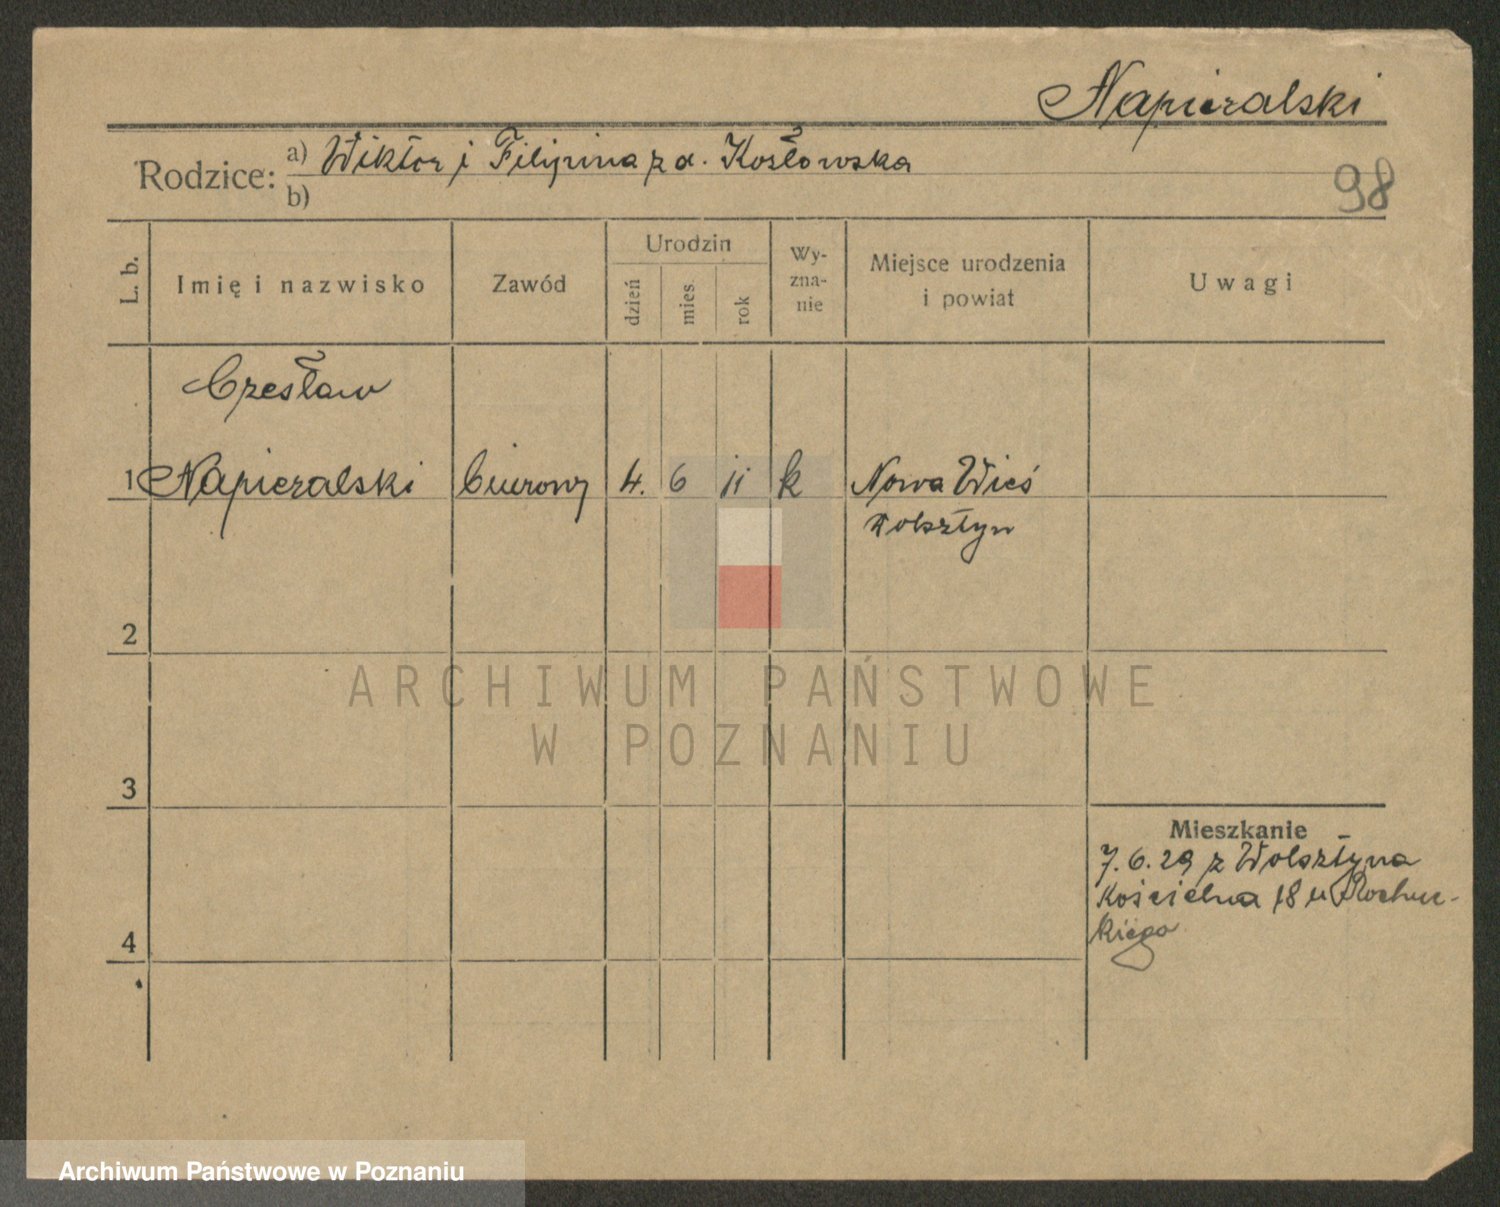 Napieralski
Rodzice: a) Wiktor i Filipina z d. Kosłowska
b)
98
L. b.
Imię i nazwisko
Zawód
Urodzin
dzień
mies
rok
Wy-
zna-
nie
Miejsce urodzenia
i powiat
Uwagi
Czesław
1 Napieralski biurowy 4. 6 11 k Nowa Wieś
Wolsztyn
2
ARCHIWUM PAŃSTWOWE
W POZNANIU
3
Mieszkanie
7.6.29 z Wolsztyna
Kościelna 18 u Rochuc-
kiego
4
Archiwum Państwowe w Poznaniu